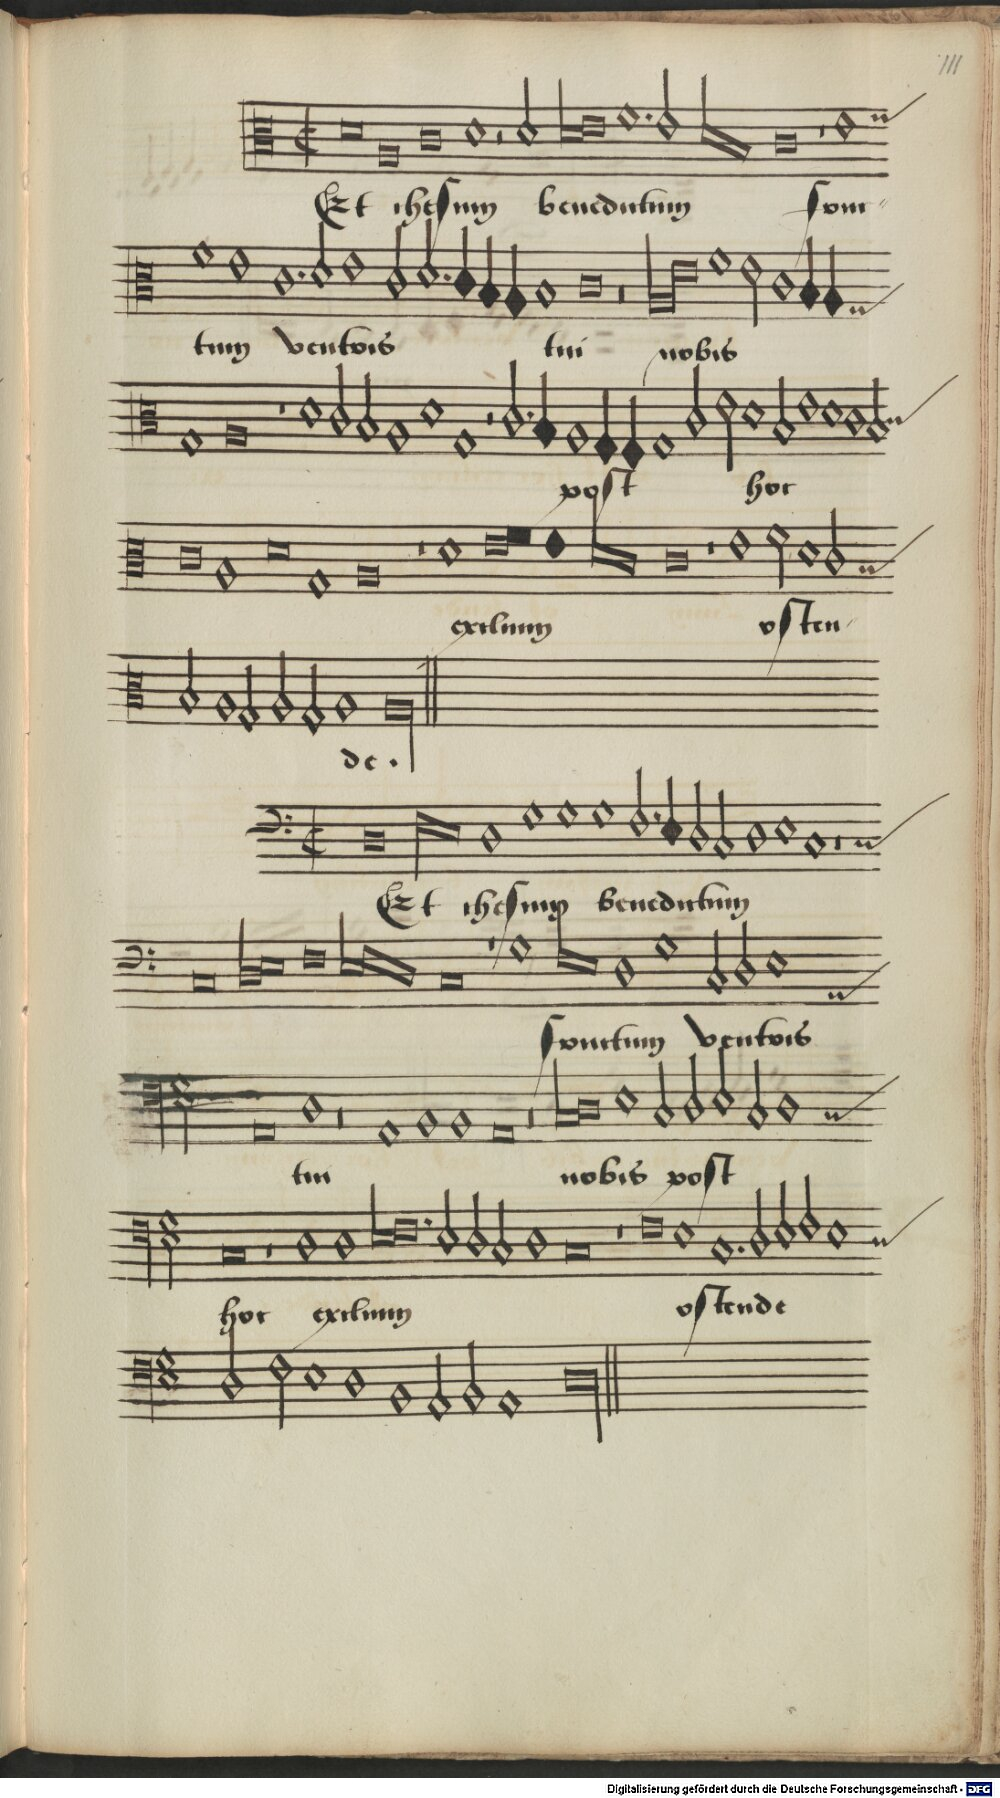 111
Et ihesum benedictum fruc-
tum ventris tui nobis
post hoc
exilium osten-
de.
Et ihesum benedictum
fructum ventris
tui nobis post
hoc exilium ostende
Digitalisierung gefördert durch die Deutsche Forschungsgemeinschaft - DFG